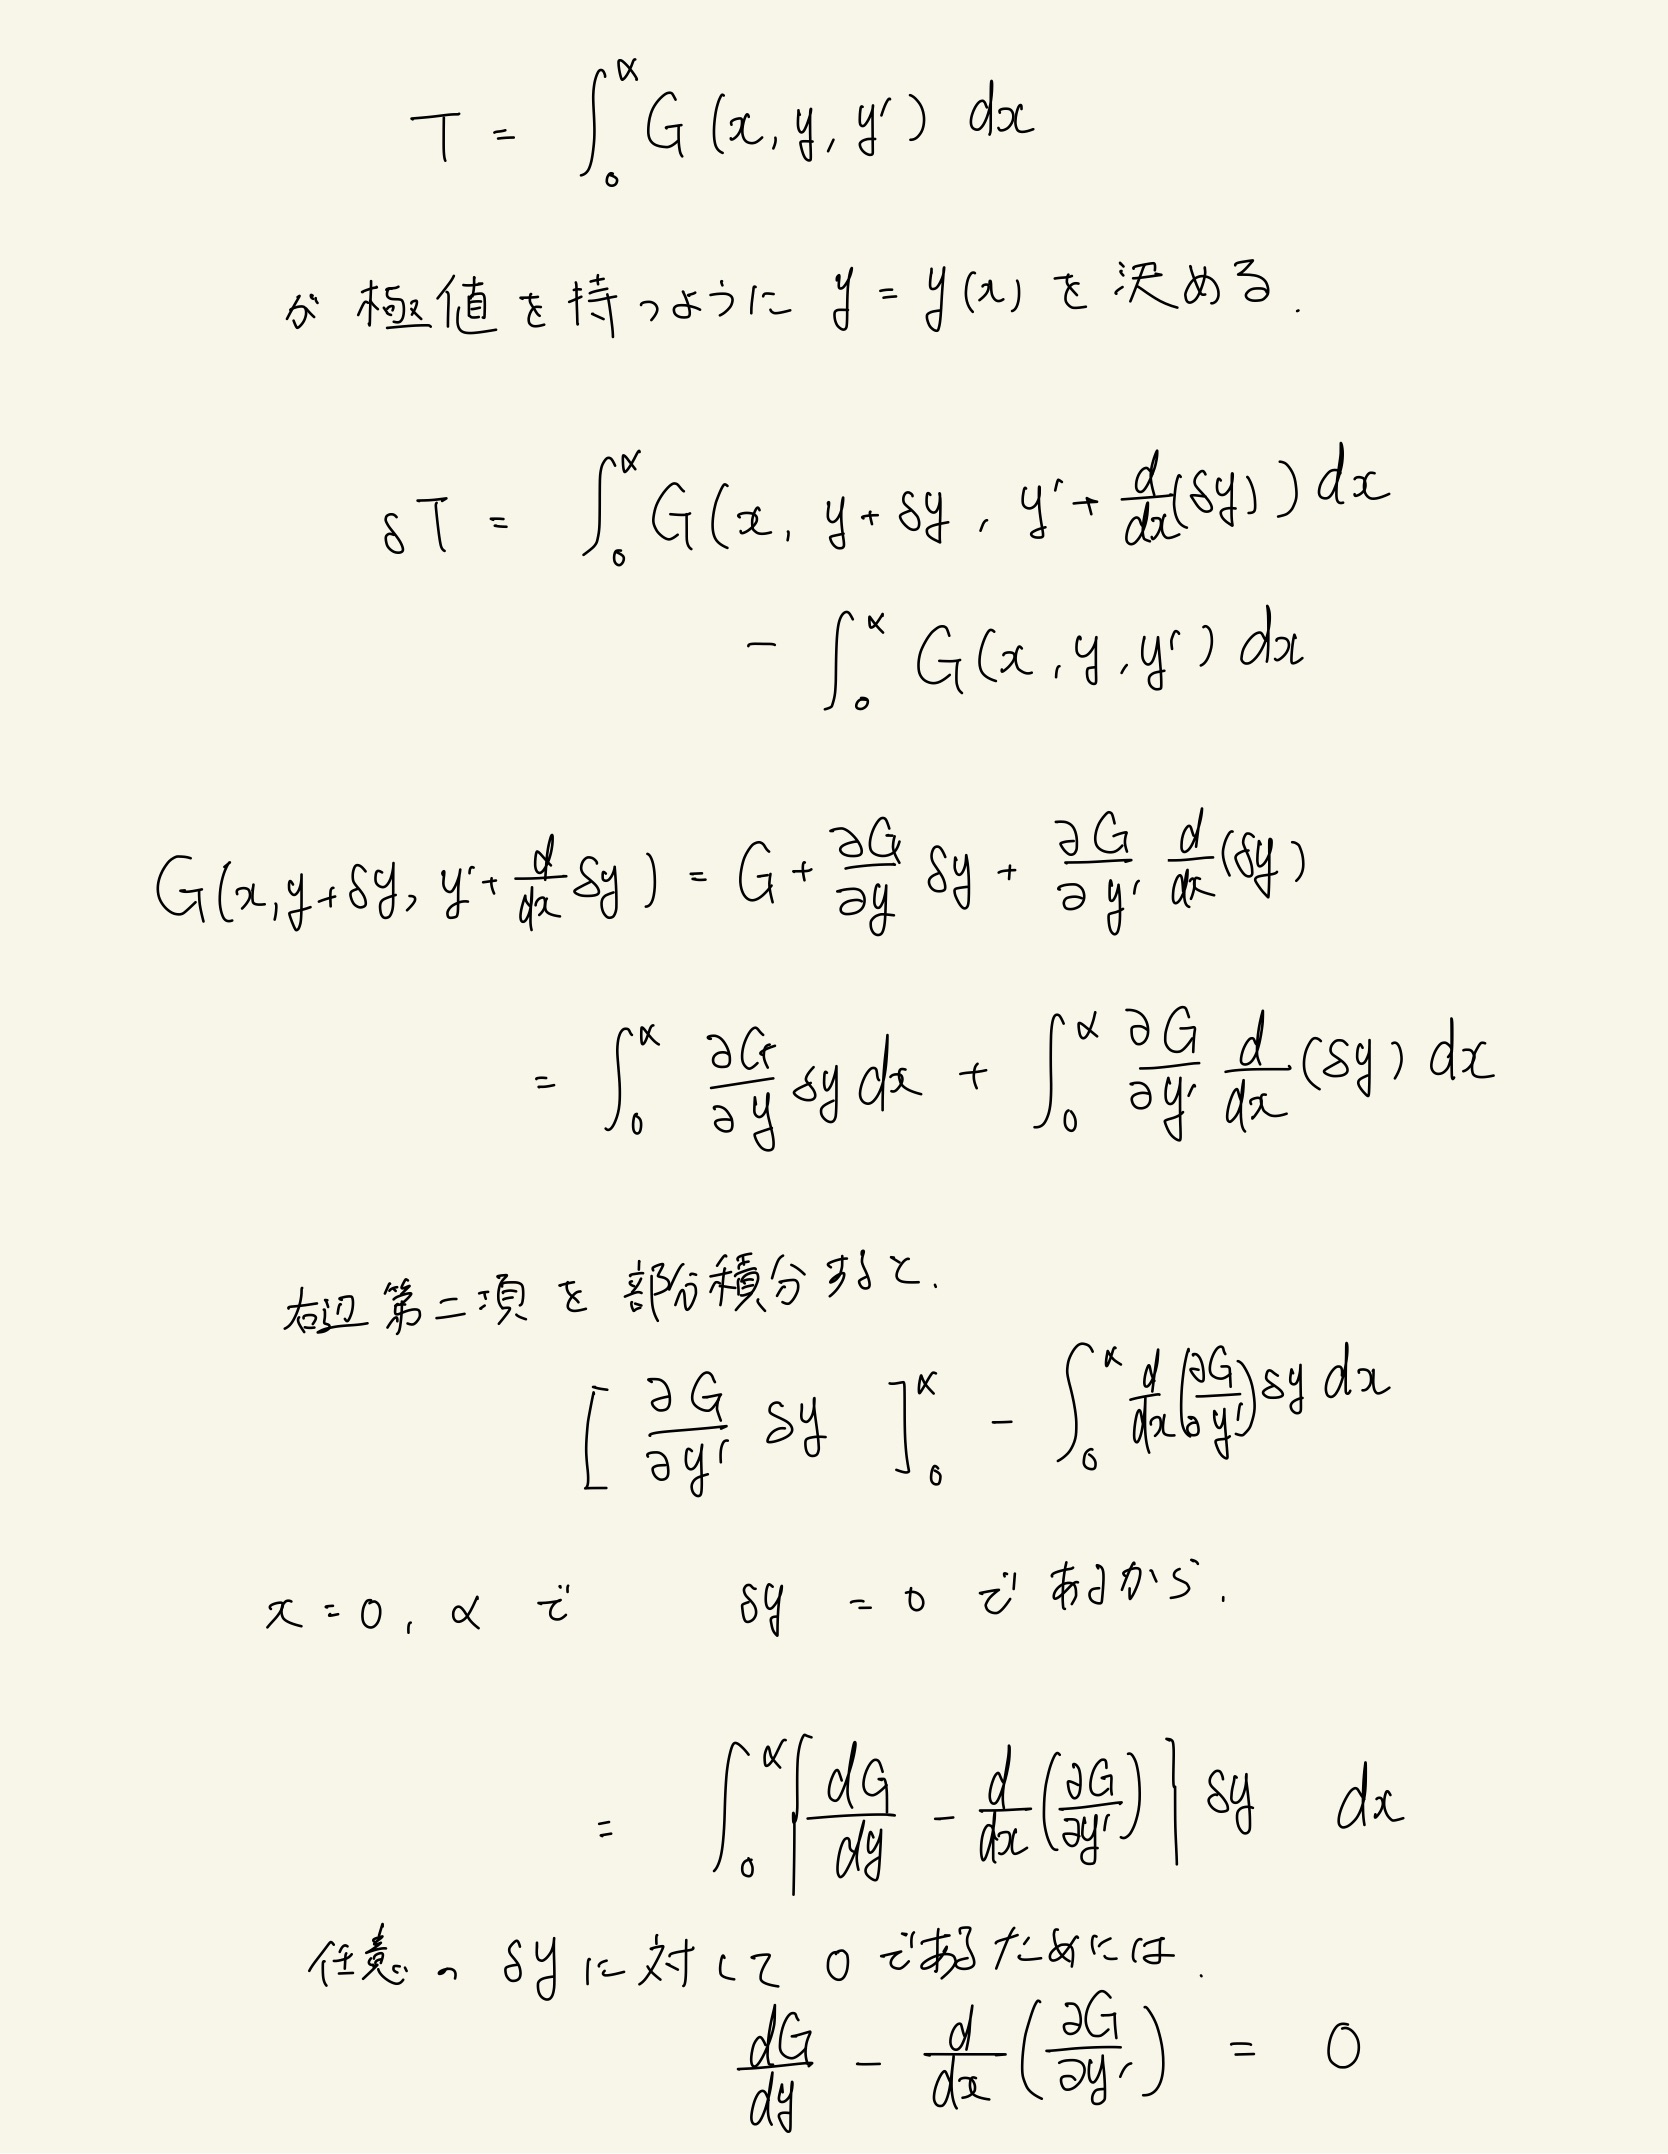 T = ∫₀^α G(x, y, y′) dx
が極値を持つように y = y(x) を決める.
δT = ∫₀^α G(x, y+δy, y′+d/dx(δy)) dx
− ∫₀^α G(x, y, y′) dx
G(x, y+δy, y′+d/dx δy) = G + ∂G/∂y δy + ∂G/∂y′ d/dx(δy)
= ∫₀^α ∂G/∂y δy dx + ∫₀^α ∂G/∂y′ d/dx(δy) dx
右辺第二項を部分積分すると.
[∂G/∂y′ δy]₀^α − ∫₀^α d/dx(∂G/∂y′) δy dx
x = 0, α で δy = 0 であるから.
= ∫₀^α [dG/dy − d/dx(∂G/∂y′)] δy dx
任意の δy に対して 0 であるためには.
dG/dy − d/dx(∂G/∂y′) = 0